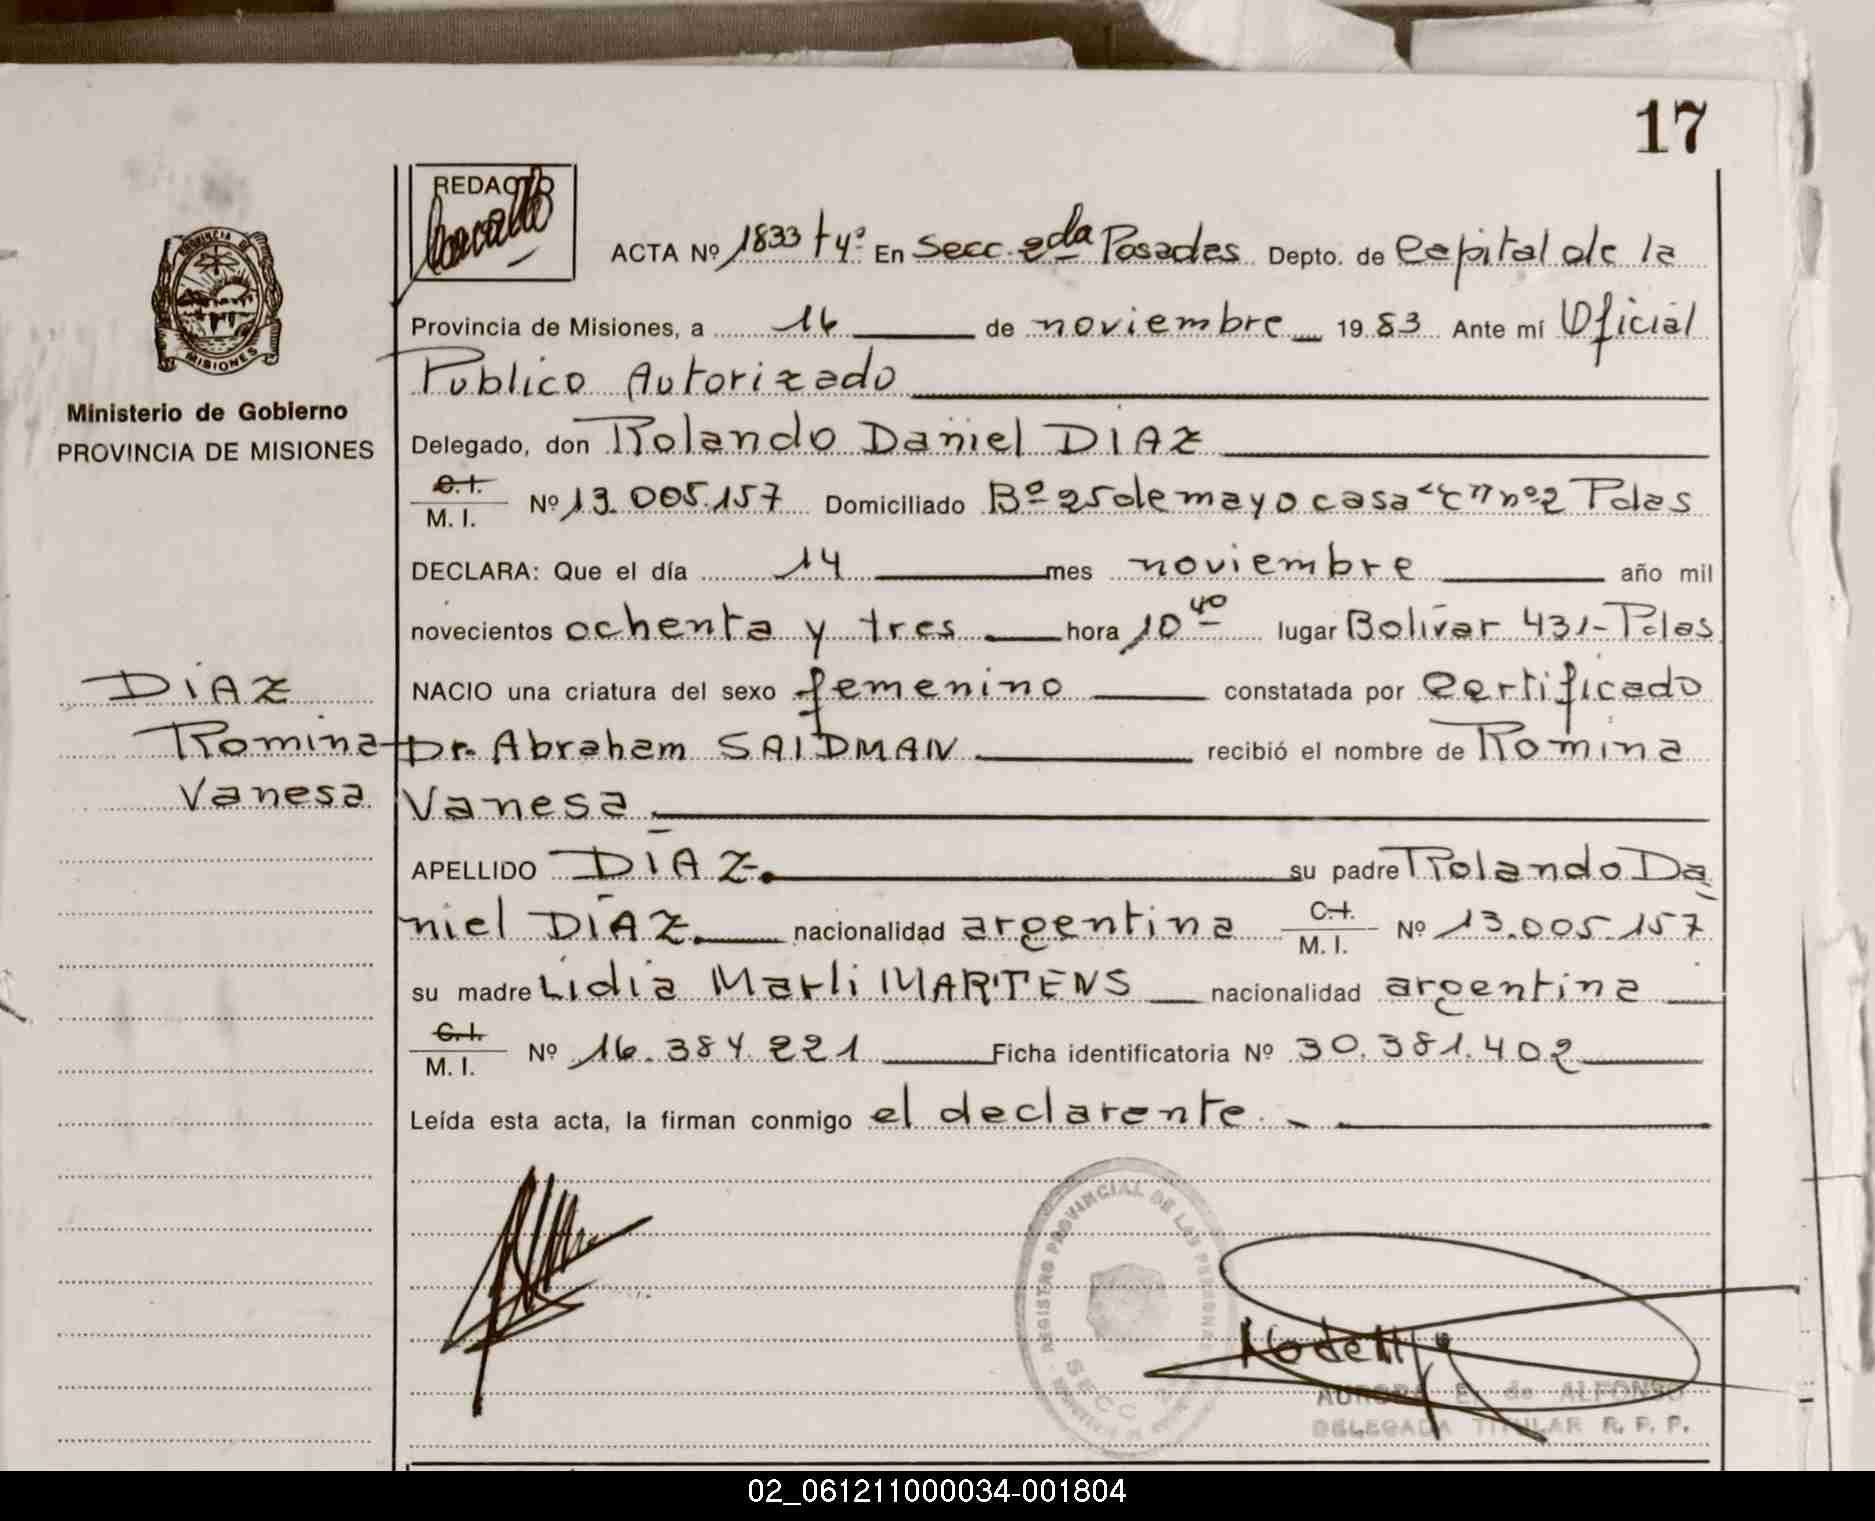 17
REDACTO
ACTA Nº 1833 t 4º En Secc. 2da Posadas Depto. de Capital de la
Provincia de Misiones, a 16 de noviembre 1983 Ante mí Oficial
Publico Autorizado
Delegado, don Rolando Daniel DIAZ
C.I.
M. I. Nº 13.005.157 Domiciliado Bº 25 de mayo casa "C" nº 2 Pdas
DECLARA: Que el día 14 mes noviembre año mil
novecientos ochenta y tres hora 10 40 lugar Bolívar 431-Pdas
NACIO una criatura del sexo femenino constatada por Certificado
Dr. Abraham SAIDMAN recibió el nombre de Romina
Vanesa
APELLIDO DÍAZ. su padre Rolando Da
niel DÍAZ. nacionalidad argentina C.I. M. I. Nº 13.005.157
su madre Lidia Marli MARTENS nacionalidad argentina
C.I.
M. I. Nº 16.384.221 Ficha identificatoria Nº 30.381.402
Leída esta acta, la firman conmigo el declarente.
PROVINCIA DE
MISIONES
Ministerio de Gobierno
PROVINCIA DE MISIONES
DIAZ
Romina
Vanesa
REGISTRO PROVINCIAL DE LAS PERSONAS
SECC
AURORA E. de ALFONSO
DELEGADA TITULAR R. P. P.
02_061211000034-001804